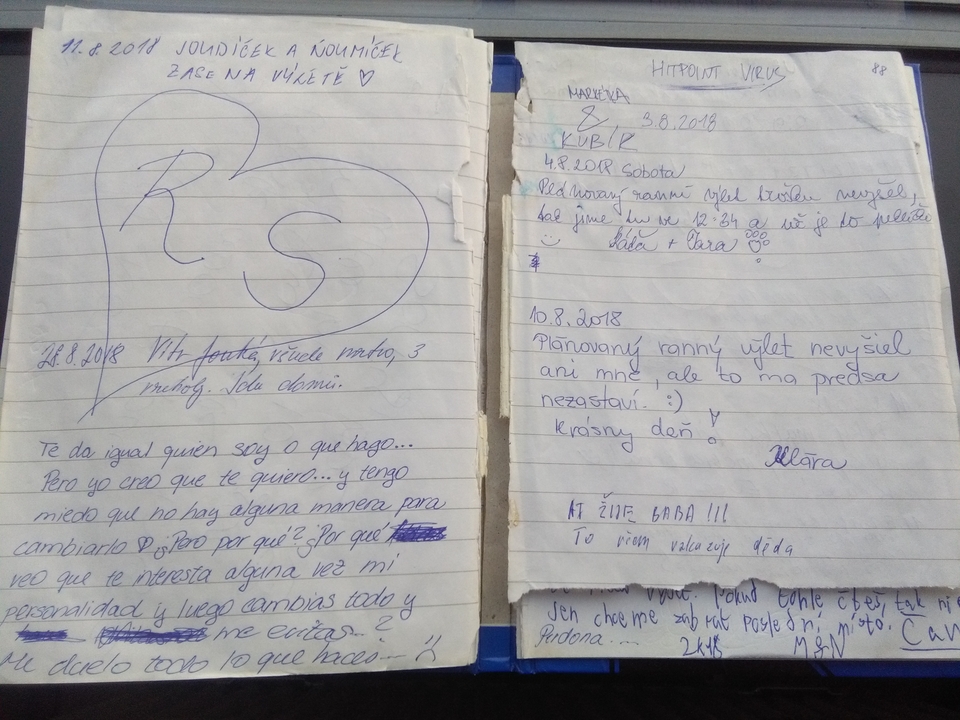 11.8.2018 JOUDÍČEK A ŇOUMÍČEK
ZASE NA VÝLETĚ ♡
R
S
28.8.2018 Vítr fouká, všude mrtvo, 3
mrtvoly. Jdu domů.
Te da igual quien soy o que hago...
Pero yo creo que te quiero... y tengo
miedo que no hay alguna manera para
cambiarlo ♡ ¿Pero por qué? ¿Por qué
veo que te interesta alguna vez mi
personalidad y luego cambias todo y
me evitas...?
Me duelo todo lo que haces...
HITPOINT VIRUS 88
MARKÉTKA
& 3.8.2018
KUBÍK
4.8.2018 Sobota
ranní výlet trošku nevyšel,
tak jsme tu ve 12:34 a už je to
:) Káča + Tara
10.8.2018
Plánovaný ranný výlet nevyšiel
ani mne, ale to ma predsa
nezastaví. :)
Krásny deň!
Klára
AŤ ŽIJE BABA !!!
To všem vzkazuje děda
Pokud tohle čteš, tak
jsen chceme zabrat poslední místo.
Perdona....
2k18 M&N